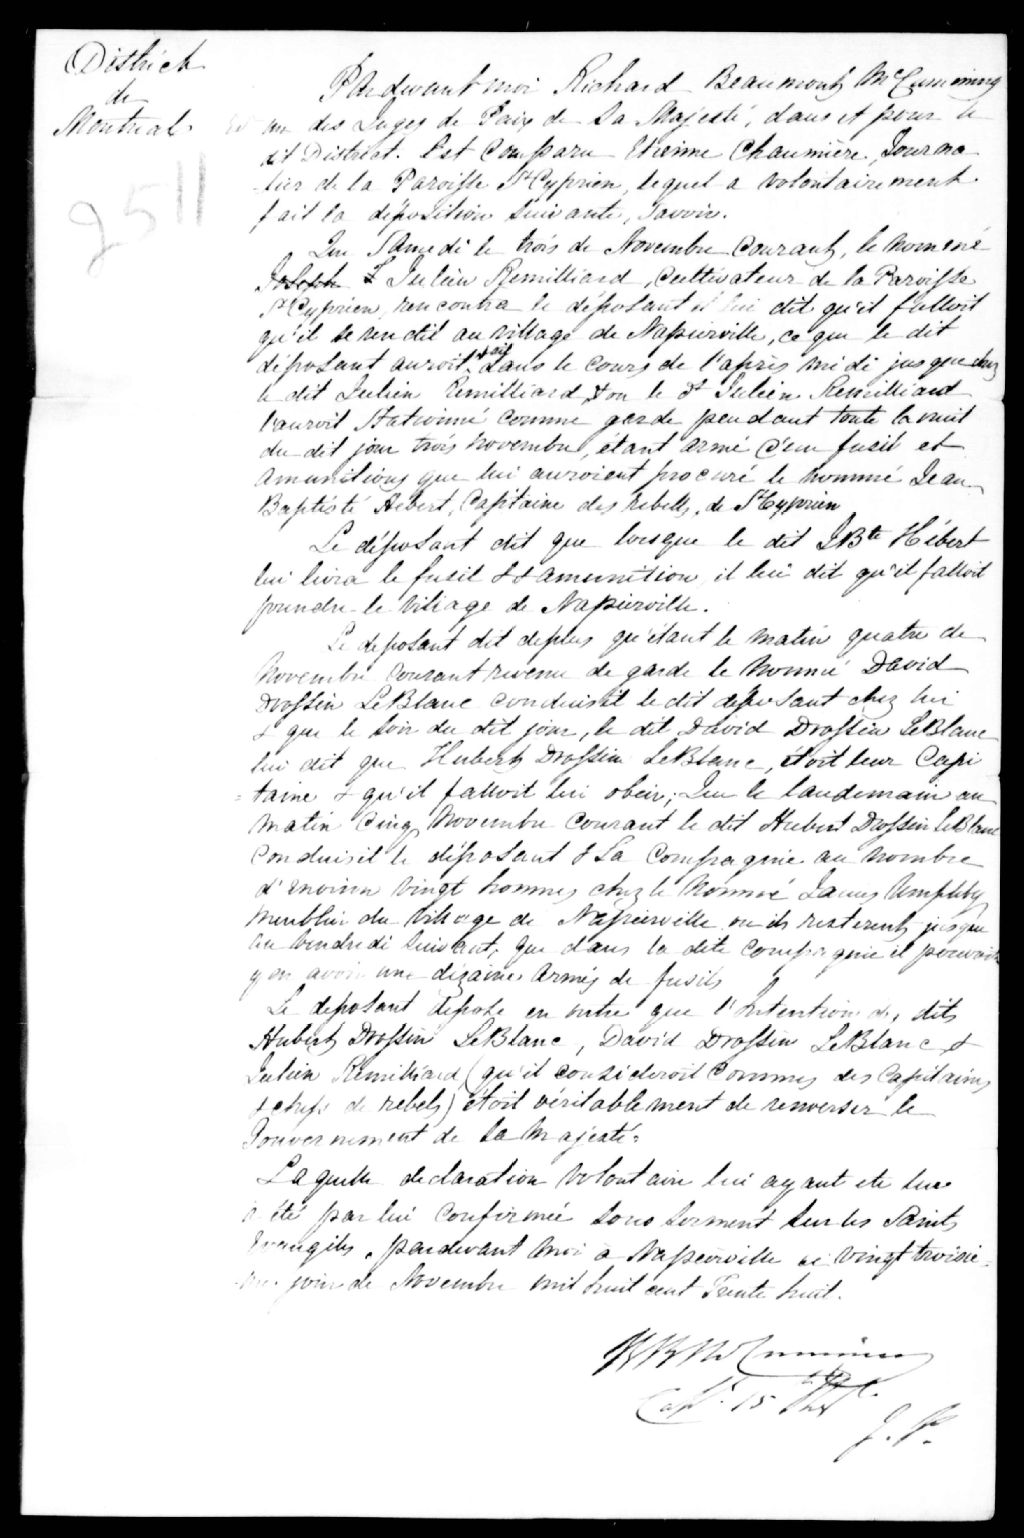 District
de
Montréal.
2511
Pardevant moi Richard Beaumont McCumming
un des Juges de Paix de Sa Majesté, dans et pour le
dit District. Est Comparu Etienne Chaumière, Journa
lier de la Paroisse St Cyprien, lequel a volontairement
fait la déposition suivante, savoir.
Que Samedi le trois de Novembre Courant, le nommé
Joseph L Julien Remilliard, Cultivateur de la Paroisse
St Cyprien, rencontra le déposant et lui dit qu'il falloit
qu'il se rendit au village de Napierville, ce que le dit
déposant auroit fait dans le cours de l'après midi jusque chez
le dit Julien Remilliard, & ou le dt Julien Remilliard
l'auroit Stationné comme garde pendant toute la nuit
du dit jour trois Novembre, étant armé d'un fusil et
amunitions que lui auroient procuré le nommé Jean
Baptiste Hebert, Capitaine des rebels, de St Cyprien
Le déposant dit que lorsque le dit JBte Hébert
lui livra le fusil & l'amunition, il lui dit qu'il falloit
prendre le Village de Napierville.
Le deposant dit deplus qu'étant le matin quatre de
Novembre courant revenu de garde le nommé David
Drossin LeBlanc conduisit le dit déposant chez lui
& que le soir du dit jour, le dit David Drossin LeBlanc
lui dit que Hubert Drossin LeBlanc, étoit leur Capi
=taine & qu'il falloit lui obeir; Que le lendemain au
matin Cinq Novembre Courant le dit Hubert Drossin LeBlanc
Conduisit le déposant & La Compagnie au nombre
d'environ vingt hommes chez le Nommé James Umphby
meublier du village de Napierville ou ils resterent jusque
au Vendredi Suivant, que dans la dite compagnie il pouvoit
y en avoir une dizaine Armés de fusils
Le deposant dépose en outre que l'intention des dits
Hubert Drossin LeBlanc, David Drossin LeBlanc &
Julien Remilliard (qu'il consideroit Comme des Capitaines
& chefs de rebels) étoit véritablement de renverser le
Gouvernement de Sa Majesté=
Laquelle declaration Volontaire lui ayant ete lue
a été par lui Confirmée sous serment sur les Saints
Evangiles, pardevant moi à Napierville ce Vingt troisiè
me jour de Novembre mil huit cent Trente huit.
RB McCumming
Capt. 15
J. P.